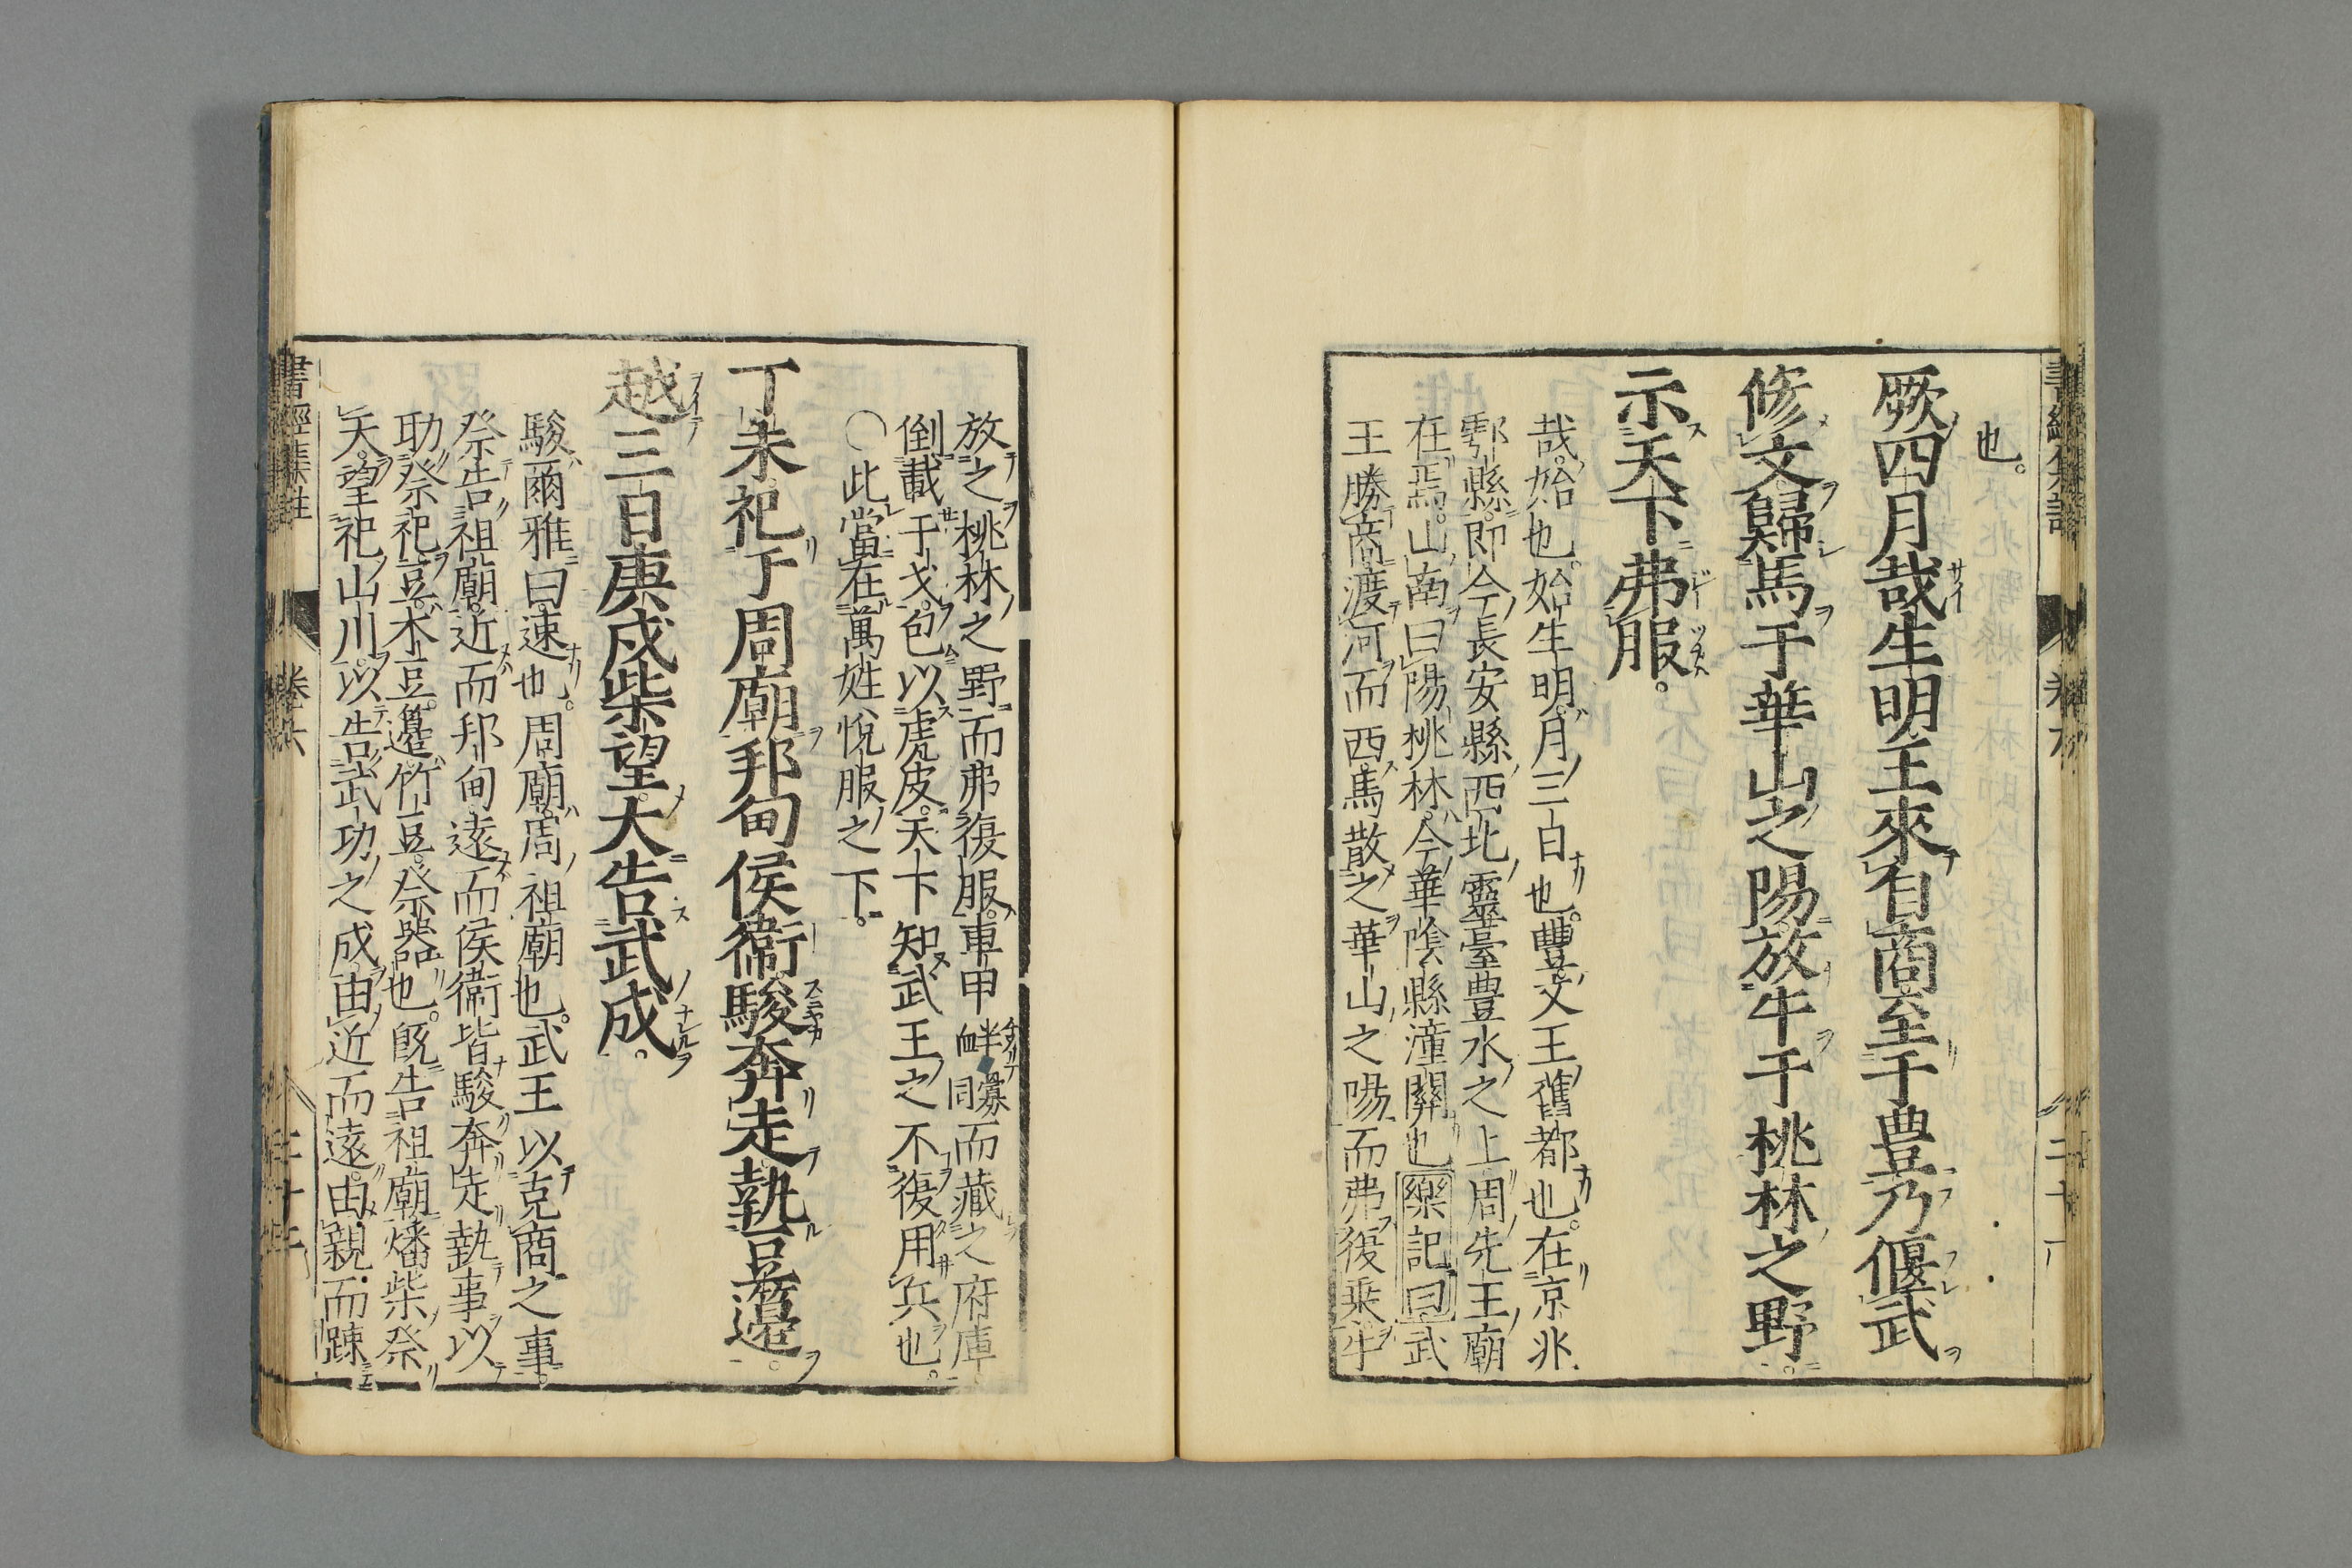 也。
厥四月哉生明王來自商至于豊乃偃武
修文歸馬于華山之陽放牛于桃林之野。
示天下弗服。
哉。始也。始生明。月三日也。豐文王舊都也。在京兆
鄠縣。即今長安縣西北靈臺豊水之上周先王廟
在焉。山南曰陽桃林。今華陰縣潼關也樂記曰武
王勝商渡河而西馬散之華山之陽而弗復乗牛
放之桃林之野而弗復服。車甲衅釁同而藏之府庫
倒載干戈。包以虎皮。天下知武王之不復用兵也。
○此當在萬姓悅服之下。
丁未祀于周廟邦甸侯衛駿奔走執豆籩。
越三日庚戌柴望大告武成。
駿爾雅曰速也。周廟。周祖廟也。武王以克商之事。
祭告祖廟。近而邦甸遠而侯衛皆駿奔走執事以
助祭祀。豆。木豆。籩。竹豆。祭器也。旣告祖廟燔柴祭
天。望祀山川。以告武功之成由近而遠。由親而踈
書經集註
卷六
二十二